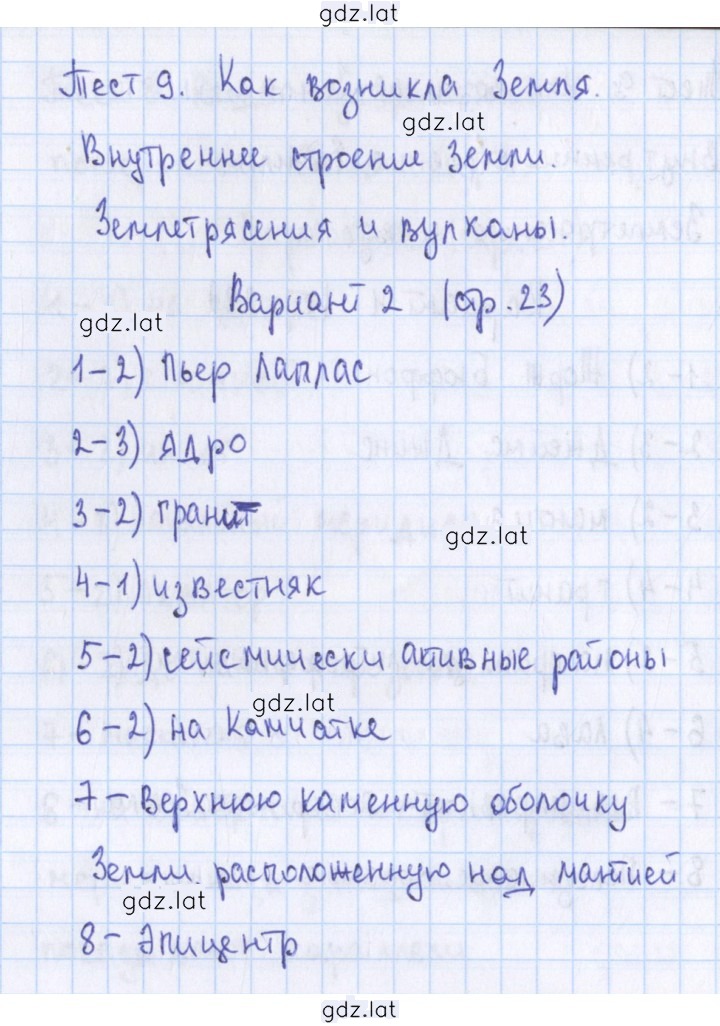 gdz.lat
Тест 9. Как возникла Земля.
gdz.lat
Внутреннее строение Земли.
Землетрясения и вулканы.
Вариант 2 (стр. 23)
gdz.lat
1-2) Пьер Лаплас
2-3) ядро
3-2) гранит
gdz.lat
4-1) известняк
5-2) сейсмически активные районы
gdz.lat
6-2) на Камчатке
7-Верхнюю каменную оболочку
Земли. расположенную над мантией
gdz.lat
8-Эпицентр
gdz.lat